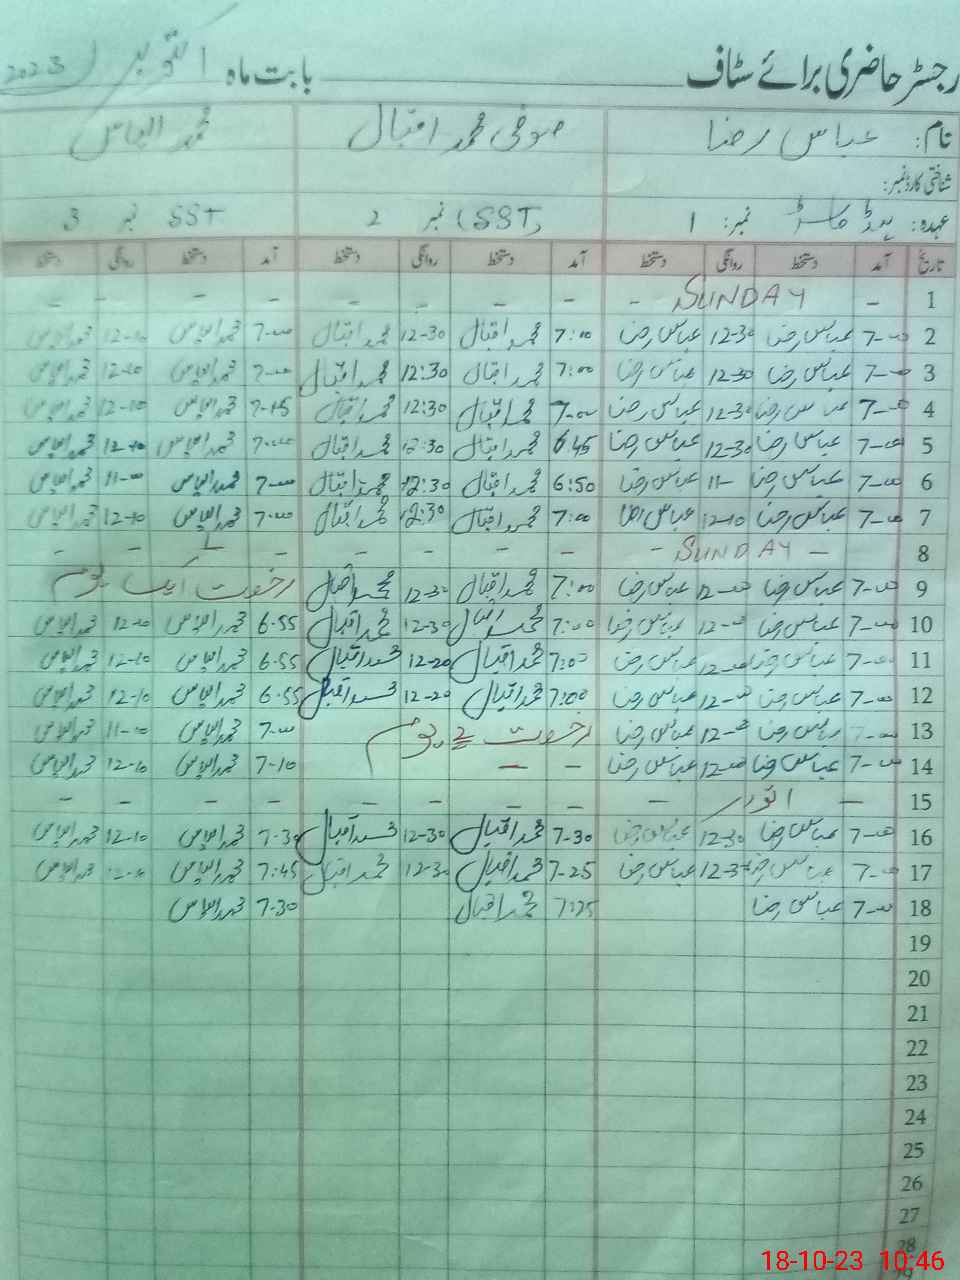 رجسٹر حاضری برائے سٹاف بابت ماہ اکتوبر 2023
نام: عباس رضا صوفی محمد اقبال محمد الیاس
شناختی کارڈ نمبر:
عہدہ: ہیڈ ماسٹر نمبر: 1 (SST) نمبر 2 SST نمبر 3
تاریخ آمد دستخط روانگی دستخط آمد دستخط روانگی دستخط آمد دستخط روانگی دستخط
1 – SUNDAY – – – – – – – – –
2 7-00 عباس رضا 12-30 عباس رضا 7:00 محمد اقبال 12-30 محمد اقبال 7-00 محمد الیاس 12-10 محمد الیاس
3 7-00 عباس رضا 12-30 عباس رضا 7:00 محمد اقبال 12:30 محمد اقبال 7-00 محمد الیاس 12-10 محمد الیاس
4 7-00 عباس رضا 12-30 عباس رضا 7-00 محمد اقبال 12:30 محمد اقبال 7-15 محمد الیاس 12-10 محمد الیاس
5 7-00 عباس رضا 12-30 عباس رضا 6:45 محمد اقبال 12:30 محمد اقبال 7-00 محمد الیاس 12-10 محمد الیاس
6 7-00 عباس رضا 11- عباس رضا 6:50 محمد اقبال 12:30 محمد اقبال 7-00 محمد الیاس 11-00 محمد الیاس
7 7-00 عباس رضا 12-10 عباس رضا 7:00 محمد اقبال 12:30 محمد اقبال 7-00 محمد الیاس 12-10 محمد الیاس
8 – SUNDAY – – – – – – – – –
9 7-00 عباس رضا 12-00 عباس رضا 7:00 محمد اقبال 12-30 محمد اقبال رخصت ایک یوم
10 7-00 عباس رضا 12-00 عباس رضا 7:00 محمد اقبال 12-30 محمد اقبال 6-55 محمد الیاس 12-10 محمد الیاس
11 7-00 عباس رضا 12-00 عباس رضا 7:00 محمد اقبال 12-20 محمد اقبال 6-55 محمد الیاس 12-10 محمد الیاس
12 7-00 عباس رضا 12-00 عباس رضا 7:00 محمد اقبال 12-20 محمد اقبال 6-55 محمد الیاس 12-10 محمد الیاس
13 7-00 عباس رضا 12-00 عباس رضا رخصت 2 یوم 7-00 محمد الیاس 11-00 محمد الیاس
14 7-00 عباس رضا 12-00 عباس رضا – – 7-10 محمد الیاس 12-10 محمد الیاس
15 – اتوار – – – – – – – – –
16 7-00 عباس رضا 12-30 عباس رضا 7-30 محمد اقبال 12-30 محمد اقبال 7-30 محمد الیاس 12-10 محمد الیاس
17 7-00 عباس رضا 12-30 عباس رضا 7-25 محمد اقبال 12-30 محمد اقبال 7:45 محمد الیاس 12-10 محمد الیاس
18 7-00 عباس رضا 7:25 محمد اقبال 7-30 محمد الیاس
19
20
21
22
23
24
25
26
27
28
29
18-10-23 10:46